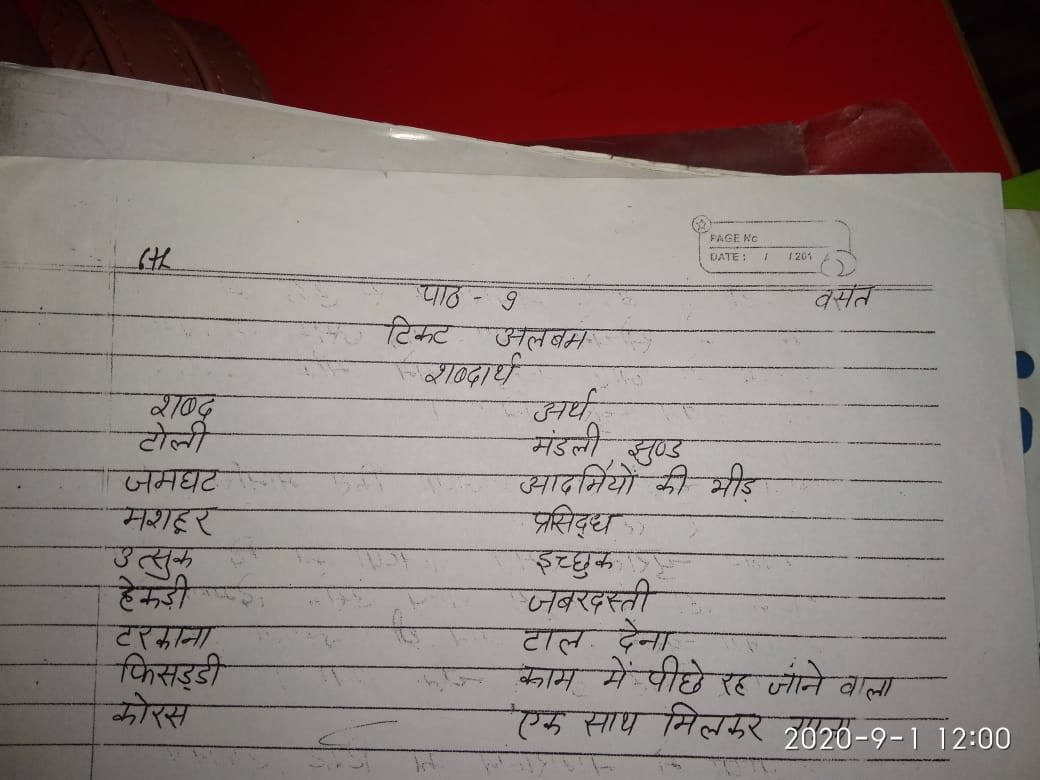 6th
PAGE No
DATE: / /201
पाठ - 9 वसंत
टिकट अलबम
शब्दार्थ
शब्द अर्थ
टोली मंडली, झुण्ड
जमघट आदमियों की भीड़
मशहूर प्रसिद्ध
उत्सुक इच्छुक
हेकड़ी जबरदस्ती
टरकाना टाल देना
फिसड्डी काम में पीछे रह जाने वाला
कोरस एक साथ मिलकर
2020-9-1 12:00